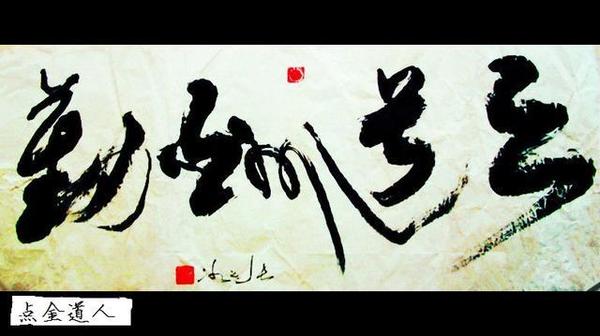 天道酬勤
点金道人